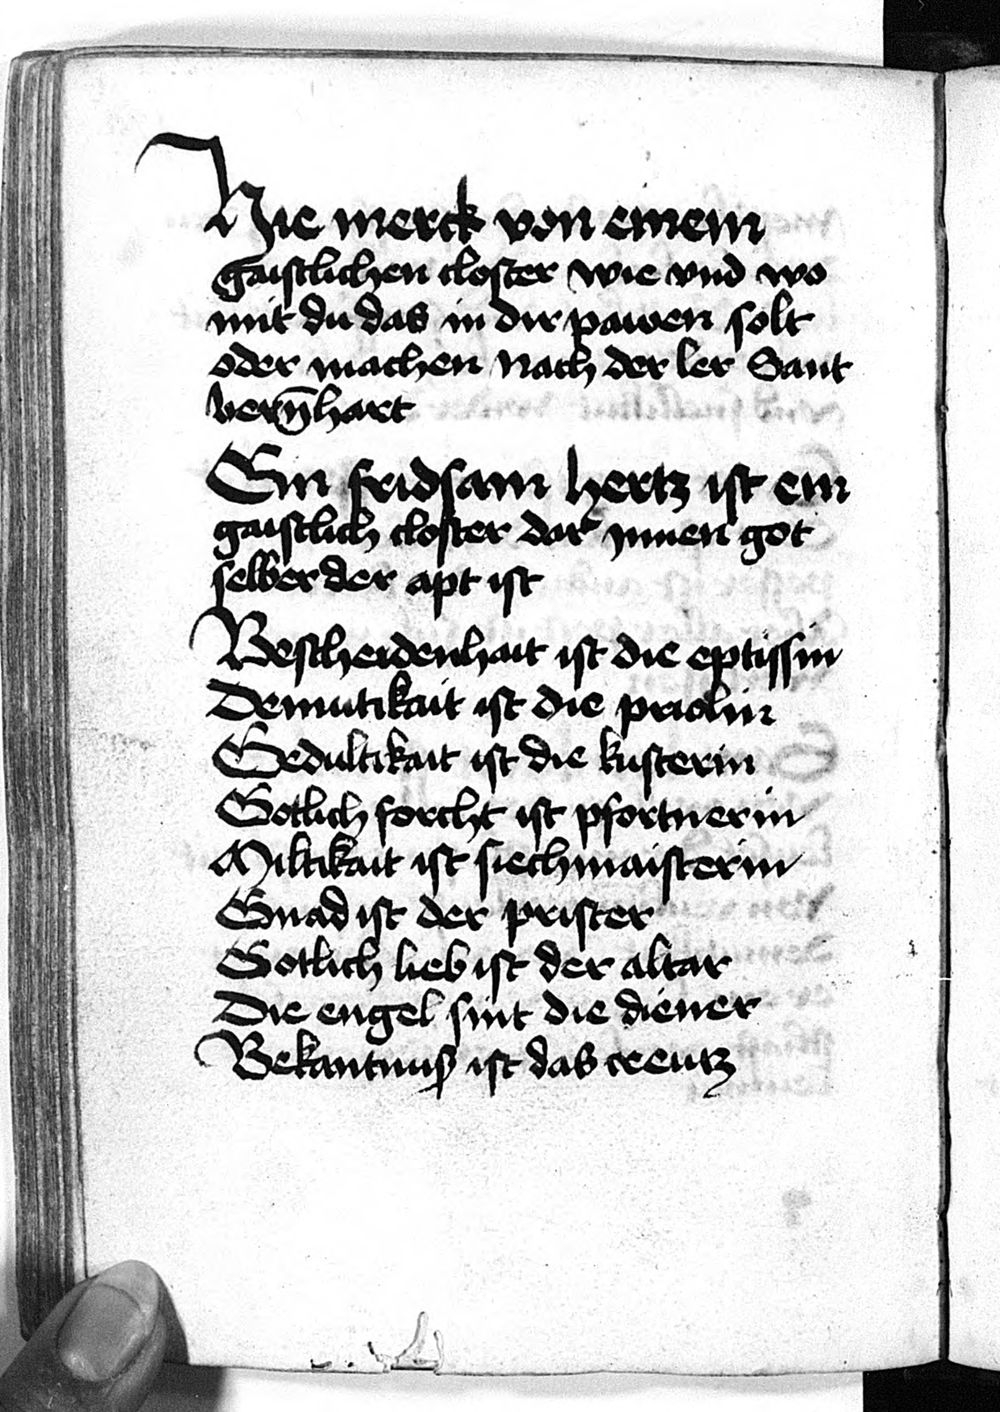 Hie merck von einem
gaistlichen closter wie vnd wo
mit du das in dir pawen solt
oder machen nach der ler Sant
bern̄hart
Ein fridsam hertz ist ein
gaistlich closter dar ynnen got
selber der apt ist
Bescheidenhait ist die eptissin
Demutikait ist die priolin
Gedultikait ist die kusterin
Gotlich forcht ist pfortnerin
Miltikait ist siechmaisterin
Gnad ist der prister
Gotlich lieb ist der altar
Die engel sint die diener
Bekantnuß ist das creutz